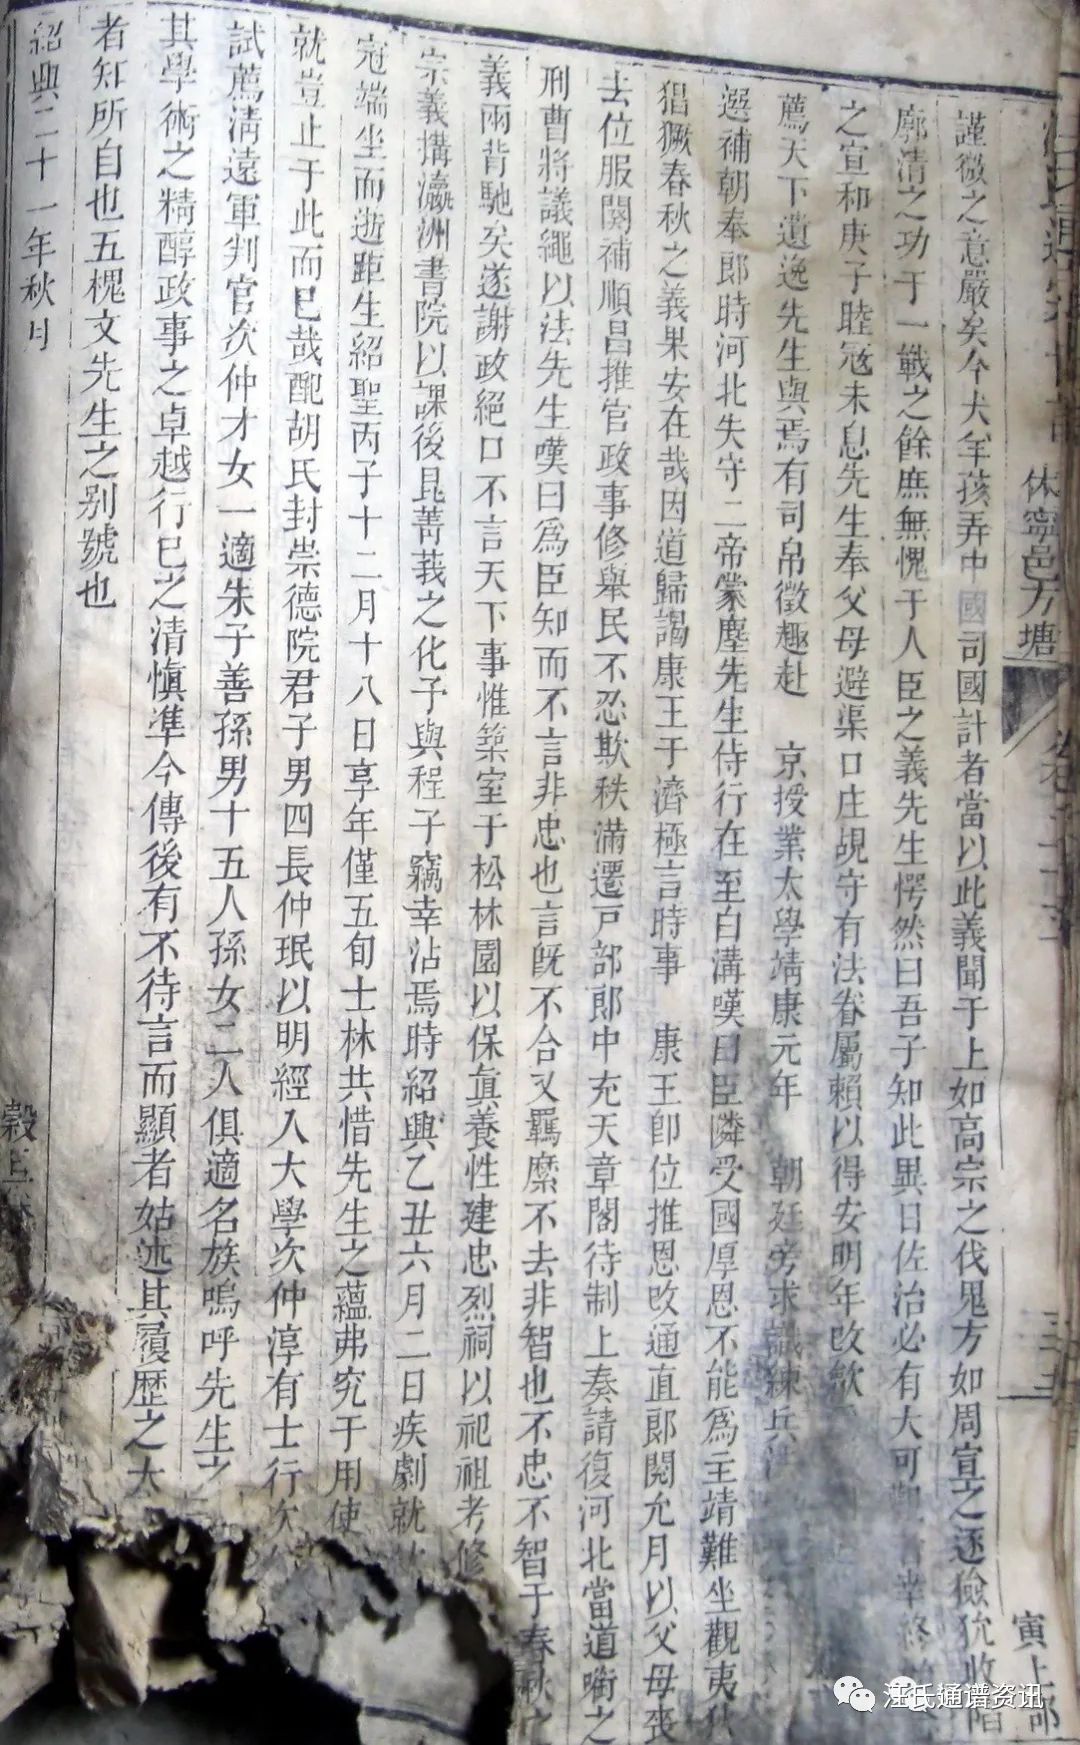 休寧邑方塘
寅上部
謹微之意嚴矣今犬羊孩弄中國司國計者當以此義聞于上如高宗之伐鬼方如周宣之逐儉狁收
廓清之功于一戰之餘庶無愧于人臣之義先生愕然曰吾子知此異日佐治必有大可
之宣和庚子睦寇未息先生奉父母避渠口庄覘守有法眷屬賴以得安明年改歙
薦天下遺逸先生與焉有司帛徵趣赴 京授業太學靖康元年 朝廷旁求識練兵
選補朝奉郎時河北失守二帝蒙塵先生侍行在至白溝嘆曰臣隣受國厚恩不能爲主靖難坐觀夷狄
猖獗春秋之義果安在哉因道歸謁康王于濟極言時事 康王卽位推恩改通直郎閱九月以父母喪
去位服闋補順昌推官政事修舉民不忍欺秩滿遷戸部郎中充天章閣待制上奏請復河北當道銜之
刑曹將議繩以法先生嘆曰爲臣知而不言非忠也言旣不合又羈縻不去非智也不忠不智于春秋之
義兩背馳矣遂謝政絕口不言天下事惟築室于松林園以保眞養性建忠烈祠以祀祖考修
宗義搆瀛洲書院以課後昆菁莪之化予與程子竊幸沾焉時紹興乙丑六月二日疾劇就
冠端坐而逝距生紹聖丙子十二月十八日享年僅五旬士林共惜先生之蘊弗究于用使
就豈止于此而已哉配胡氏封崇德院君子男四長仲珉以明經入大學次仲淳有士行次
試薦淸遠軍判官次仲才女一適朱子善孫男十五人孫女二人俱適名族嗚呼先生之
其學術之精醇政事之卓越行已之清愼準今傳後有不待言而顯者姑述其履歷之大
者知所自也五槐文先生之别號也
紹興二十一年秋月
汪氏通谱资讯